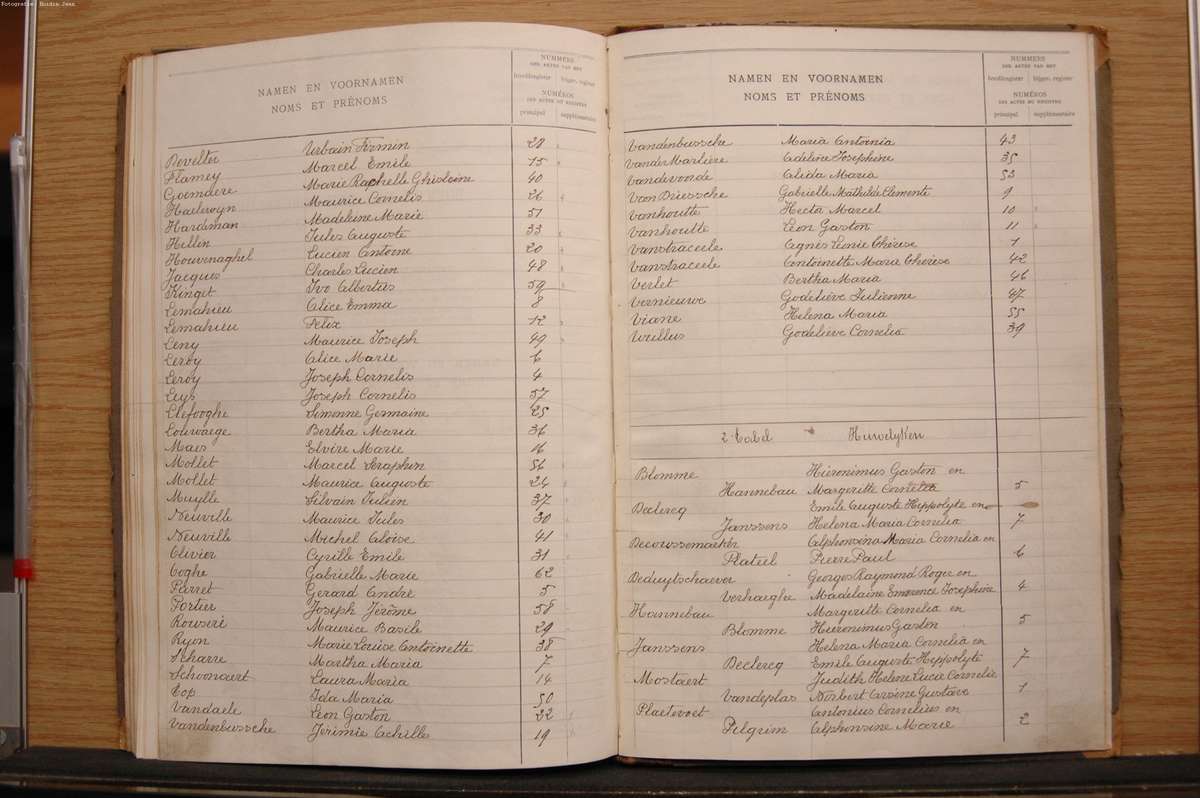 Fotografie: Huidra Jean
NAMEN EN VOORNAMEN
NOMS ET PRÉNOMS
NUMMERS
DER AKTEN VAN HET
hoofdregister bijgev. register
NUMÉROS
DES ACTES DU REGISTRE
principal supplémentaire
Develter Urbain Firmin 28
Flamey Marcel Emile 15
Goemaere Marie Rachelle Ghislaine 40
Haelewyn Maurice Cornelis 26
Hardeman Madeleine Marie 51
Hillin Jules Auguste 33
Houvenaghel Lucien Antoine 20
Jacques Charles Lucien 48
Kingit Ivo Albertus 59
Lemahieu Alice Emma 8
Lemahieu Felix 12
Leny Maurice Joseph 49
Leroy Alice Marie 6
Leroy Joseph Cornelis 4
Leys Joseph Cornelis 57
Liefooghe Simonne Germaine 25
Louwaege Bertha Maria 36
Maes Elvire Marie 16
Mollet Marcel Seraphin 56
Mollet Maurice Auguste 24
Muylle Silvain Julien 37
Neuville Maurice Jules 30
Neuville Michel Aloïse 41
Olivier Cyrille Emile 31
Ooghe Gabrielle Marie 62
Parret Gerard André 5
Portier Joseph Jérôme 58
Rouseré Maurice Basile 29
Ryon Marie Louise Antoinette 38
Scharre Martha Maria 7
Schoonaert Laura Maria 14
Top Ida Maria 50
Vandaele Léon Gaston 22
Vandenbussche Jérimie Achille 19
NAMEN EN VOORNAMEN
NOMS ET PRÉNOMS
NUMMERS
DER AKTEN VAN HET
hoofdregister bijgev. register
NUMÉROS
DES ACTES DU REGISTRE
principal supplémentaire
Vandenbussche Maria Antoinia 43
VanderMarlière Adeline Josephine 35
Vandevonde Alida Maria 53
Van Driessche Gabrielle Mathilde Clemente 9
Vanhoutte Hector Marcel 10
Vanhoutte Léon Gaston 11
Vanstraceele Agnès Lenie Thérèse 1
Vanstraceele Antoinette Maria Thérèse 42
Verlet Bertha Maria 46
Vernieuwe Godelieve Julienne 47
Viane Helena Maria 55
Wullus Godelieve Cornelia 39
2e Tabel Huwelyken
Blomme Hieronimus Gaston en
Hannebau Margeritte Cornelia 5
Declercq Emile Auguste Hippolyte en
Janssens Helena Maria Cornelia 7
Decoussemaeker Alphonsina Maria Cornelia en
Plateil Pierre Paul 6
Deduytschaever Georges Raymond Roger en
Verhaeghe Madelaine Emerence Josephine 4
Hannebau Margeritte Cornelia en
Blomme Hieronimus Gaston 5
Janssens Helena Maria Cornelia en
Declercq Emile Auguste Hippolyte 7
Mostaert Judith Helene Lucie Cornelie
Vandeplas Norbert Arsène Gustave 1
Plaetevoet Antonius Cornelius en
Pelgrim Alphonsine Marie 2